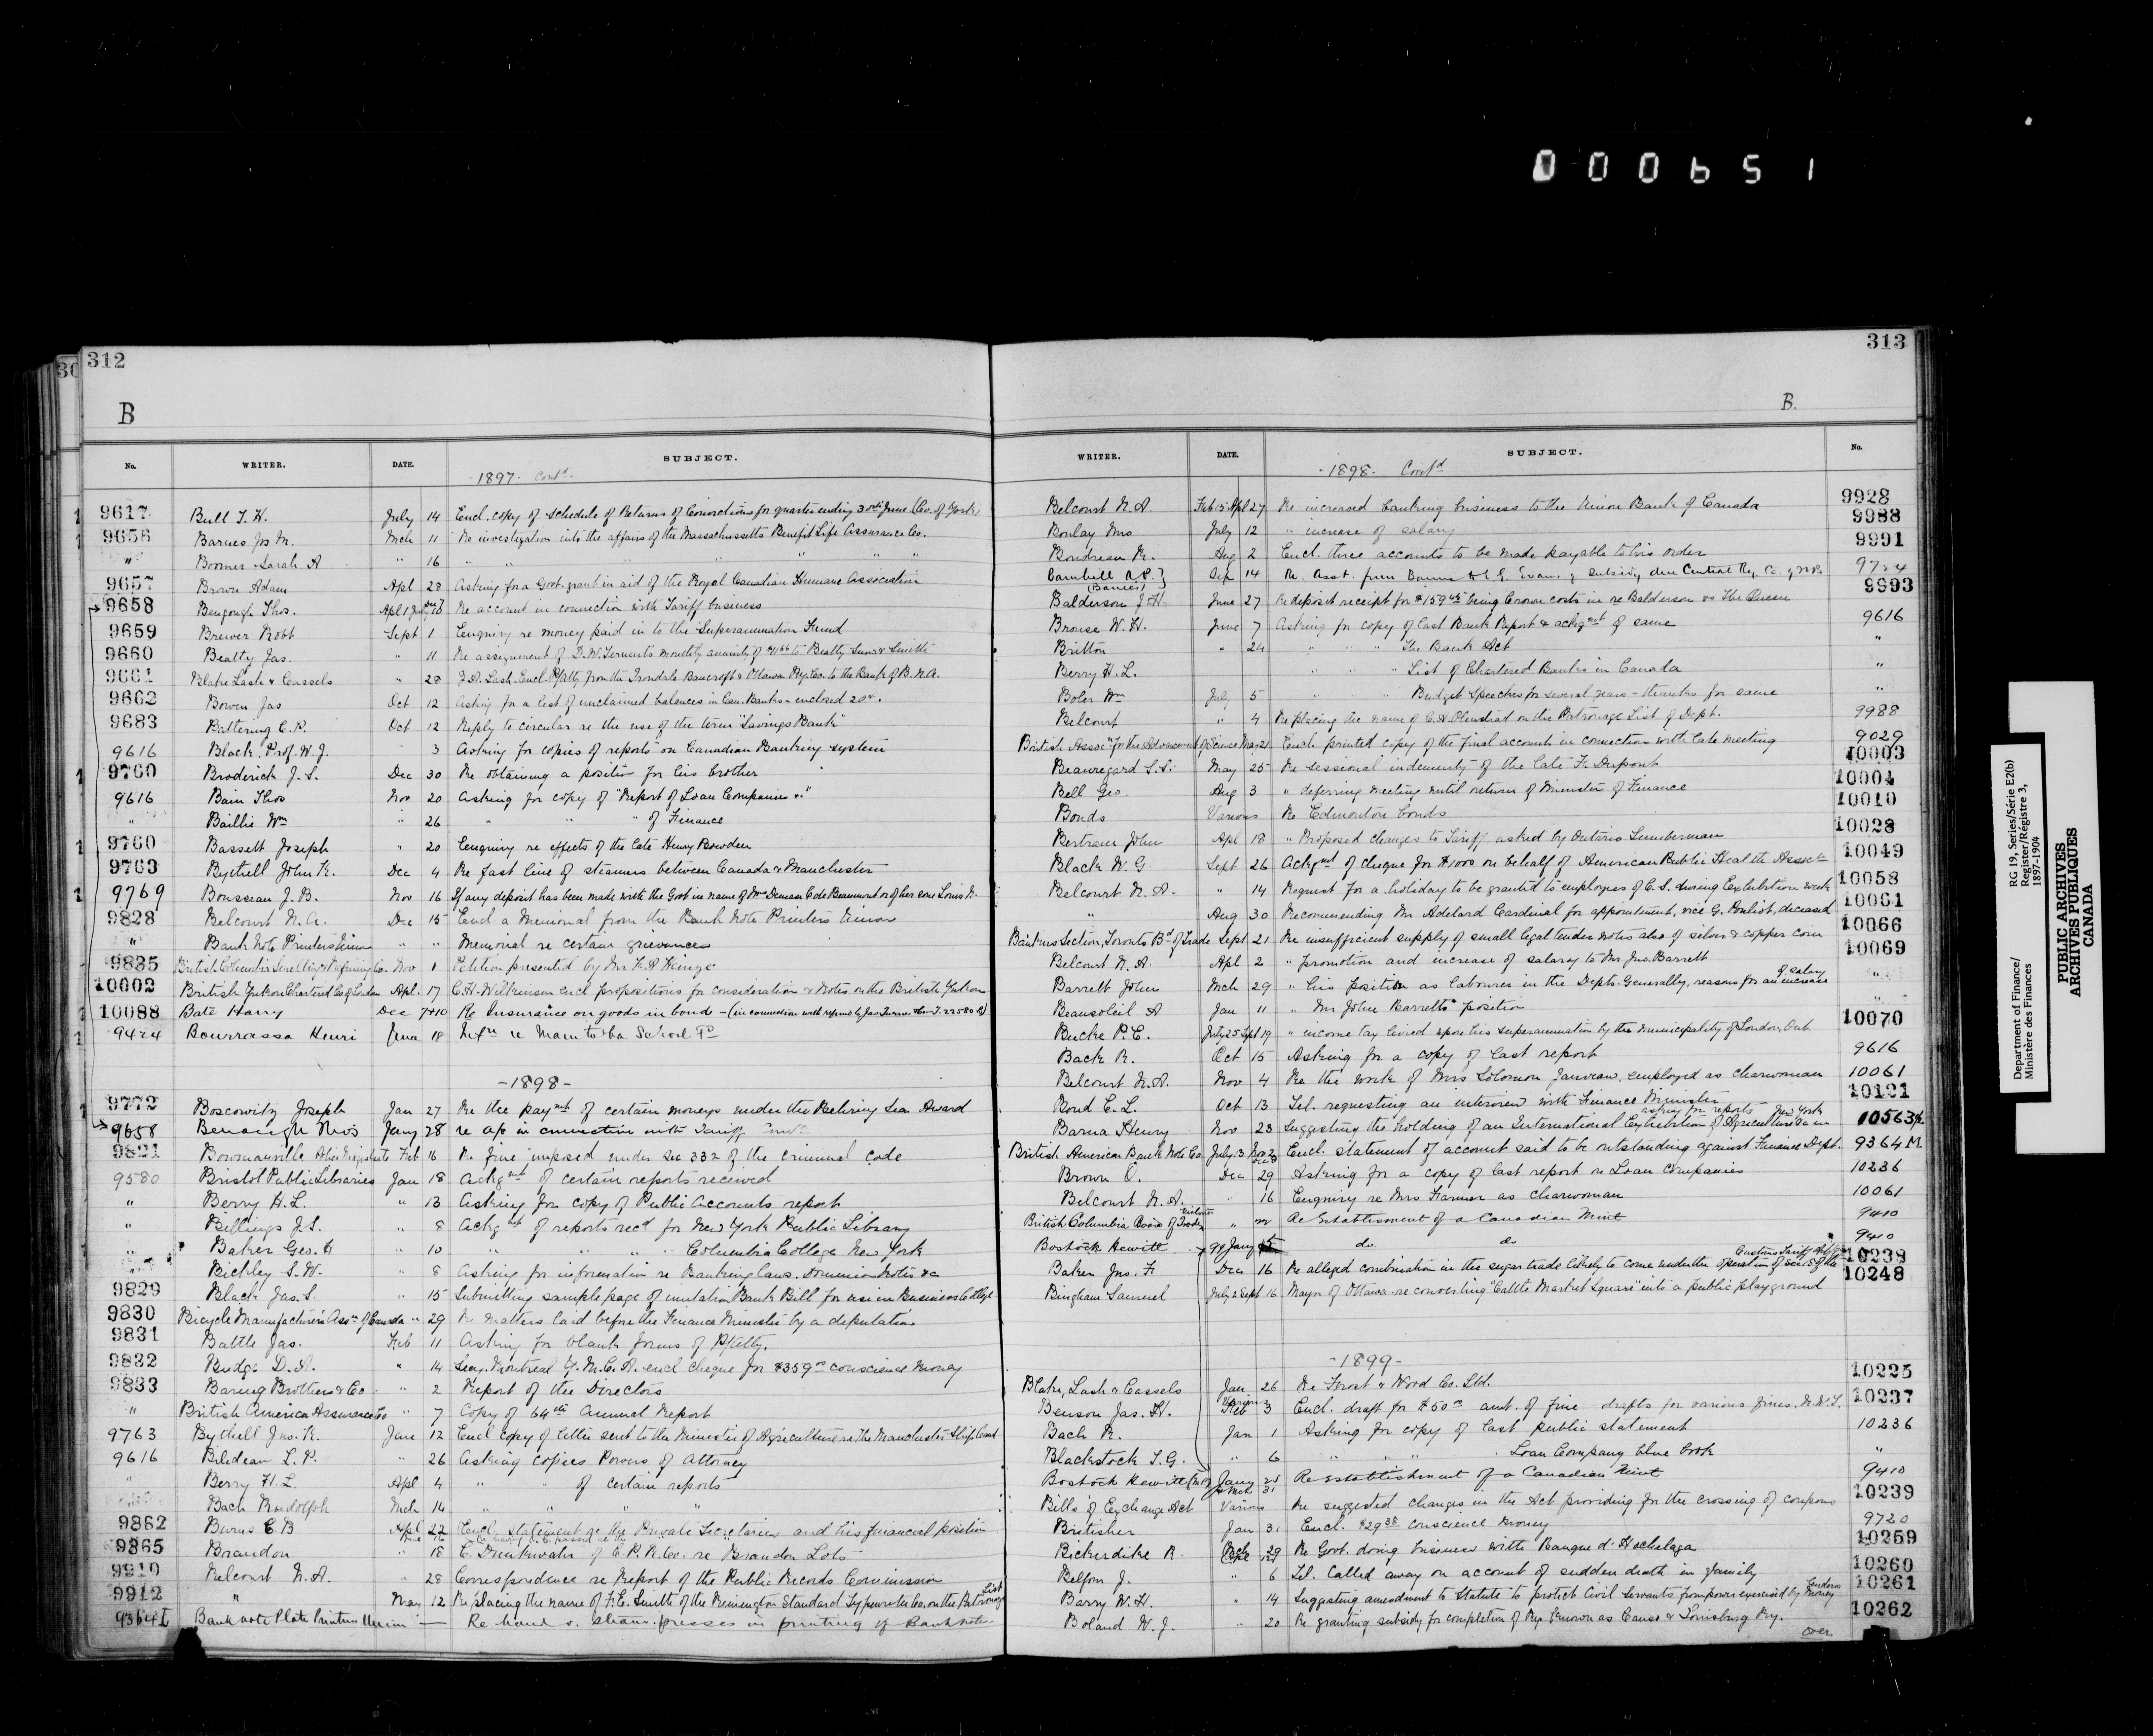 000651
312
B
No. WRITER. DATE. SUBJECT.
- 1897 - Contd.
9617 Bull T. H. July 14 Encl. copy of schedule of Returns of Convictions for quarter ending 30th June (Co. of York)
9656 Barnes Jos M. Mch 11 Re investigation into the affairs of the Massachusetts Benefit Life Assurance Co.
" Boomer Sarah A " 16 " " " " " "
9657 Brown Adam Apl 28 Asking for a Govt. grant in aid of the Royal Canadian Humane Association
9658 Bengough Thos. Apl 1 Re account in connection with Tariff business
9659 Brewer Robt Sept 1 Enquiry re money paid in to the Superannuation Fund
9660 Beatty Jas. " 11 Re assignment of D. W. monthly annuity of to Beatty &
9661 Blake Lash & Cassels " 28 Z. A. Lash. Encl. P/Atty from the Irondale Bancroft & Ottawa Ry. Co. to the Bank of B. N. A.
9662 Bowen Jas Oct 12 Asking for a list of unclaimed balances in Can. Banks - enclosed 20c.
9683 Battering C. R. Oct 12 Reply to circular re the use of the term "Savings Bank"
9616 Black, Prof. W. J. 3 Asking for copies of reports on Canadian Banking system
9760 Broderick J. S. Dec 30 Re obtaining a position for his brother
9616 Bain Thos Nov 20 Asking for copy of "Report of Loan Companies &c"
" Baillie Wm " 26 " " " of Finance
9760 Bassett Joseph " 20 Enquiry re effects of the late Henry Bowden
9763 Bythell John K. Dec 4 Re fast line of steamers between Canada & Manchester
9769 Bousseau J. B. Nov 16 If any deposit has been made with the Govt in name of Mme C de Beaumont or of her son Louis N.
9828 Belcourt N. A. Dec 15 Encl a Memorial from the Bank Note Printers Union
" Bank Note Printers Union " " Memorial re certain grievances
9835 British Columbia Smelting & Refining Co. Nov 1 Petition presented by Mr F. A
10002 British Yukon Chartered Co of London Apl. 17 C. H. Wilkinson encl propositions for consideration & Notes on the British Yukon
10088 Bate Harry Dec 7&10 Re Insurance on goods in bond - (in connection with
9424 Bourrassa Henri June 18 re Manitoba School
- 1898 -
9772 Boscowitz Joseph Jan 27 Re the paymt of certain moneys under the Behring Sea Award
9658 Bengough Thos Jany 28 re a/c in connection with Tariff
9821 Bowmanville Police Magistrate Feb 16 Re fine imposed under Sec 332 of the criminal code
9580 Bristol Public Libraries Jan 18 Ackgmt of certain reports received
" Berry H. L. " 13 Asking for copy of Public Accounts report
" Billings J. S. " 8 Ackgmt of reports recd for New York Public Library
" Baker Geo. H " 10 " " " " Columbia College New York
" Bichley S. W. " 8 Asking for information re Banking laws. Dominion Notes &c
9829 Black Jas. S. " 15 Submitting sample page of imitation Bank Bill for use in Business College
9830 Bicycle Manufacturers Assn of Canada " 29 Re matters laid before the Finance Minister by a deputation
9831 Battle Jas. Feb 11 Asking for blank forms of P/Atty.
9832 Budge D. A. " 14 Secy. Montreal Y. M. C. A. encl cheque for $359 conscience money
9833 Baring Brothers & Co " 2 Report of the Directors
" British America Assurance Co " 7 Copy of 64th Annual Report
9763 Bythell Jno. K. Jan 12 Encl copy of letter sent to the Minister of Agriculture re the Manchester Ship Canal
9616 Biledeau L. P. " 26 Asking copies Powers of Attorney
" Berry H. L. Apl 4 " " of certain reports
Bach Rudolph Mch 14 " " " "
9862 Burns C. B Apl 22 Encl. statement re the Private Secretaries and his financial position
9865 Brandon " 18 C. Drinkwater of C. P. R. Co. re Brandon Lots
9910 Belcourt N. A. " 28 Correspondence re Report of the Public Records Commission
9912 " May 12 Re placing the name of F. E. Smith of the Remington Standard Typewriter Co. on the Patronage List
9364 I Bank note Plate Printers Union — Re hand v. steam presses in printing of Bank notes
313
B.
WRITER. DATE. SUBJECT. No.
- 1898 - Contd
Belcourt N. A. Feb 15 Apl 27 Re increased banking business to the Union Bank of Canada 9928
Borlay Mrs July 12 " increase of salary 9988
Boudreau R. Aug 2 Encl. three accounts to be made payable to his order 9991
Barnhill A. P. (Barrier) Sep 14 Re. Asst. from & G. Evans of subsidy due Central Ry. Co. of N B 9724
Balderson J. H. June 27 Re deposit receipt for $159.45 being Crown costs in re Balderson vs The Queen 9993
Brouse W. H. June 7 Asking for copy of last Bank Report & ackgmt of same 9616
Britton " 24 " " " The Bank Act "
Berry H. L. " " List of Chartered Banks in Canada "
Boler Wm July 5 " " Budget Speeches for several years - thanks for same "
Belcourt " 4 Re placing the name of C. A. Olmstead on the Patronage List of Dept. 9988
British Assocn for the Advancement of Science May 21 Encl. printed copy of the final accounts in connection with late meeting 9029
Beauregard S. S. May 25 Re sessional indemnity of the late F. Dupont 10003
Bell Geo. Aug 3 " deferring meeting until return of Minister of Finance 10004
Bonds Various Re Edmonton bonds 10010
Bertram John Apl 18 " Proposed changes to Tariff asked by Ontario Lumberman 10028
Black W. G Sept 26 Ackgmt of cheque for $1000 on behalf of American Public Health Assoctn 10049
Belcourt N. A. " 14 Request for a holiday to be granted to employees of C. S. during Exhibition week 10058
" Aug 30 Recommending Mr Adelard Cardinal for appointment, vice G. Pouliot, deceased 10061
Bankers Section, Toronto Bd of Trade Sept 21 Re insufficient supply of small legal tender notes also of silver & copper coin 10066
Belcourt N. A. Apl 2 " promotion and increase of salary to Mr Jno. Barrett 10069
Barrett John Mch 29 " his position as labourer in the Depts. Generally, reasons for an increase of salary "
Beausoleil A Jan 11 " Mr John Barretts position "
Bucke P. E. July 25 Sept 19 " income tax levied upon his superannuation by the Municipality of London, Ont. 10070
Back R. Oct 15 Asking for a copy of last report 9616
Belcourt N. A. Nov 4 Re the work of Mrs Solomon Jauveau, employed as charwoman 10061
Bond E. L. Oct 13 Tel. requesting an interview with Finance Minister 10121
asking for reports - New York
Barna Henry Nov 23 Suggesting the holding of an International Exhibition of Agriculture &c in 10563½
British American Bank Note Co July 3 Nov 2 Encl. statement of account said to be outstanding against Finance Dept. 9364 M
Brown O. Dec 29 Asking for a copy of last report on Loan Companies 10236
Belcourt N. A. " 16 Enquiry re Mrs Farmer as charwoman 10061
British Columbia Board of Trade Victoria " Re Establishment of a Canadian Mint 9410
Bostock Hewitt 99 Jany 5 do do 9410
Baker Jno. F. Dec 16 Re alleged combination in the sugar trade likely to come under the operation of Sec 18 of the Customs Tariff Act 10238
Bingham Samuel July 2 Sept 16 Mayor of Ottawa re converting "Cattle Market Square" into a public playground 10248
- 1899 -
Blake, Lash & Cassels Jan 26 Re Frost & Wood Co. Ltd. 10225
Benson Jas. H. Various Feb 3 Encl. draft for $50 amt. of fine drafts for various fines. N. W. T. 10237
Bach R. Jan 1 Asking for copy of last public statement 10236
Blackstock T. G. " 6 " " " Loan Company blue book "
Bostock Hewitt (M.P.) Jany 25 & Mch 31 Re establishment of a Canadian Mint 9410
Bills of Exchange Act Various Re suggested changes in the Act providing for the crossing of coupons 10239
Britisher Jan 31 Encl. $29.38 conscience money 9720
Bickerdike R. Mch 29 Re Govt. doing business with Banque d'Hochelaga 10259
Belfon J. " 6 Tel. Called away on account of sudden death in family 10260
Barry W. H. " 14 Suggesting amendment to Statute to protect Civil Servants from power exercised by money lenders 10261
Boland W. J. " 20 Re granting subsidy for completion of Ry. known as Canso & Louisburg Ry. 10262
over
Department of Finance/
Ministère des Finances
RG 19, Series/Série E2(b)
Register/Régistre 3,
1897-1904
PUBLIC ARCHIVES
ARCHIVES PUBLIQUES
CANADA